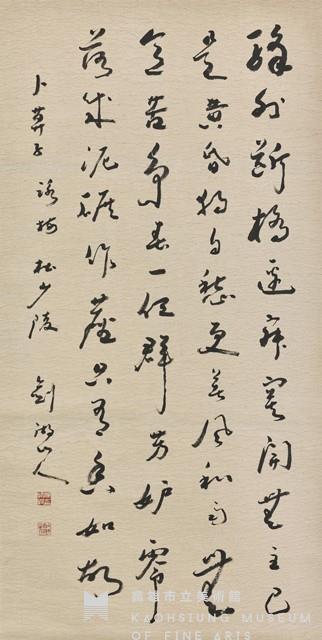 驛外斷橋邊寂寞開無主已
是黃昏獨自愁更著風和雨無
意苦爭春一任群芳妒零
落成泥碾作塵只有香如故
卜算子 詠梅 杜少陵 劍湖山人
高雄市立美術館
KAOHSIUNG MUSEUM
OF FINE ARTS